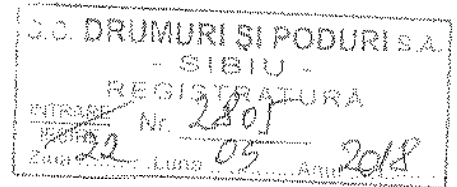 S.C. DRUMURI SI PODURI S.A.
- SIBIU -
REGISTRATURA
INTRARE
IESIRE Nr. 2805
Ziua 22 Luna 05 Anul 2018